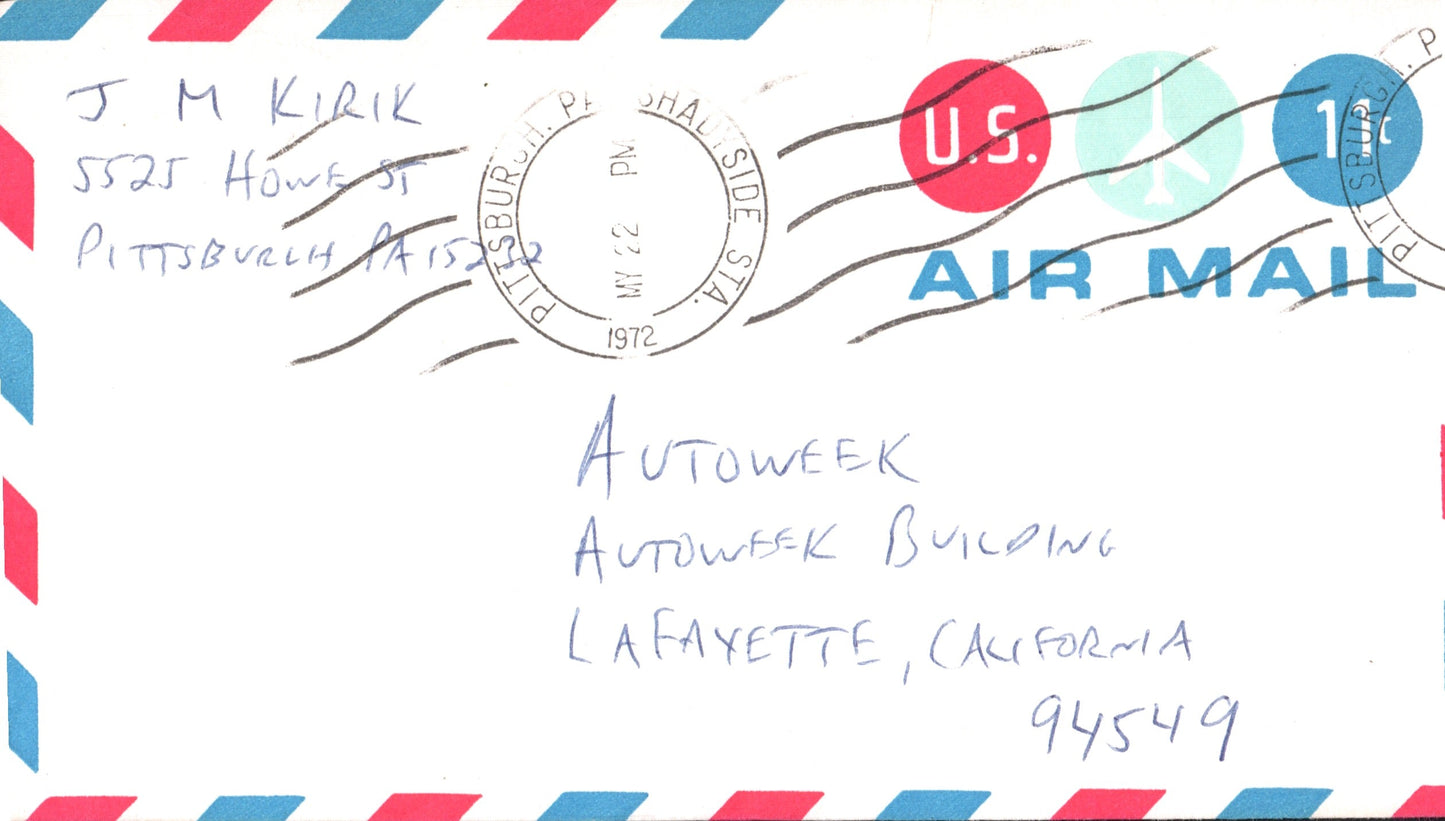 J M KIRIK
5525 HOWE ST
PITTSBURGH PA 15232
PITTSBURGH, PA SHADYSIDE STA.
MY 22 PM
1972
U.S.
11¢
AIR MAIL
PITTSBURGH, P
AUTOWEEK
AUTOWEEK BUILDING
LAFAYETTE, CALIFORNIA
94549